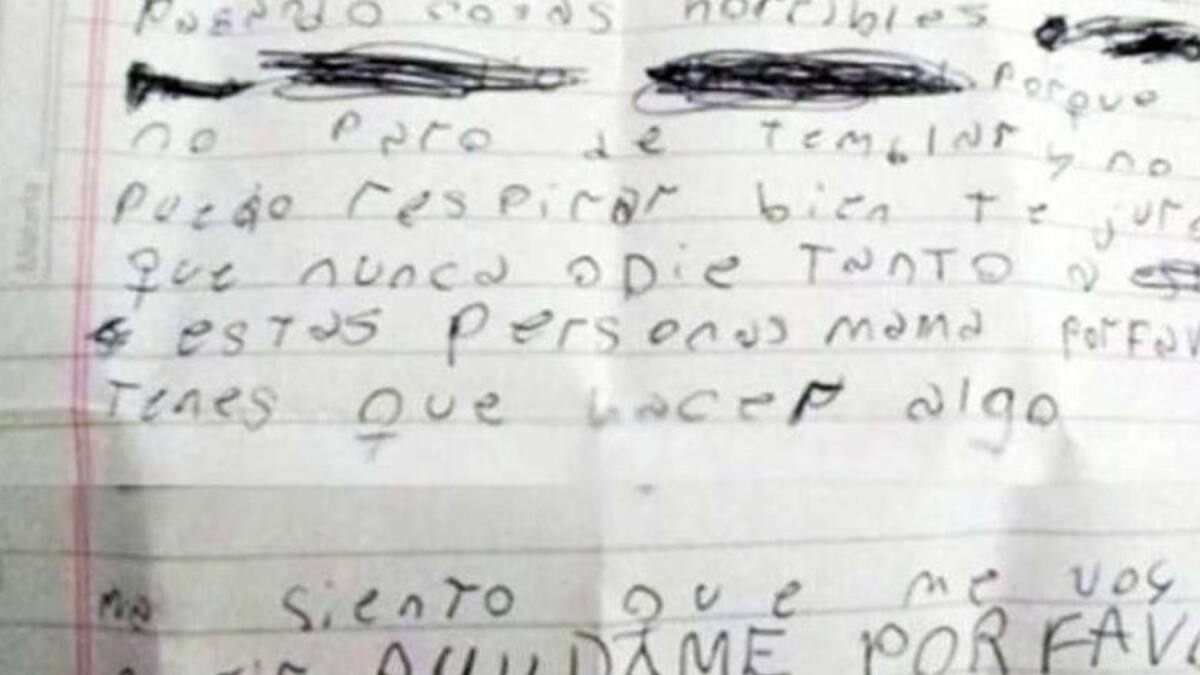 cosas horribles
porque
no paro de Temblar y no
puedo respirar bien Te
que nunca oDie TanTO a
esTas personas mama
Tenes que hacer algo
no sienTO que me
AYUDAME POR